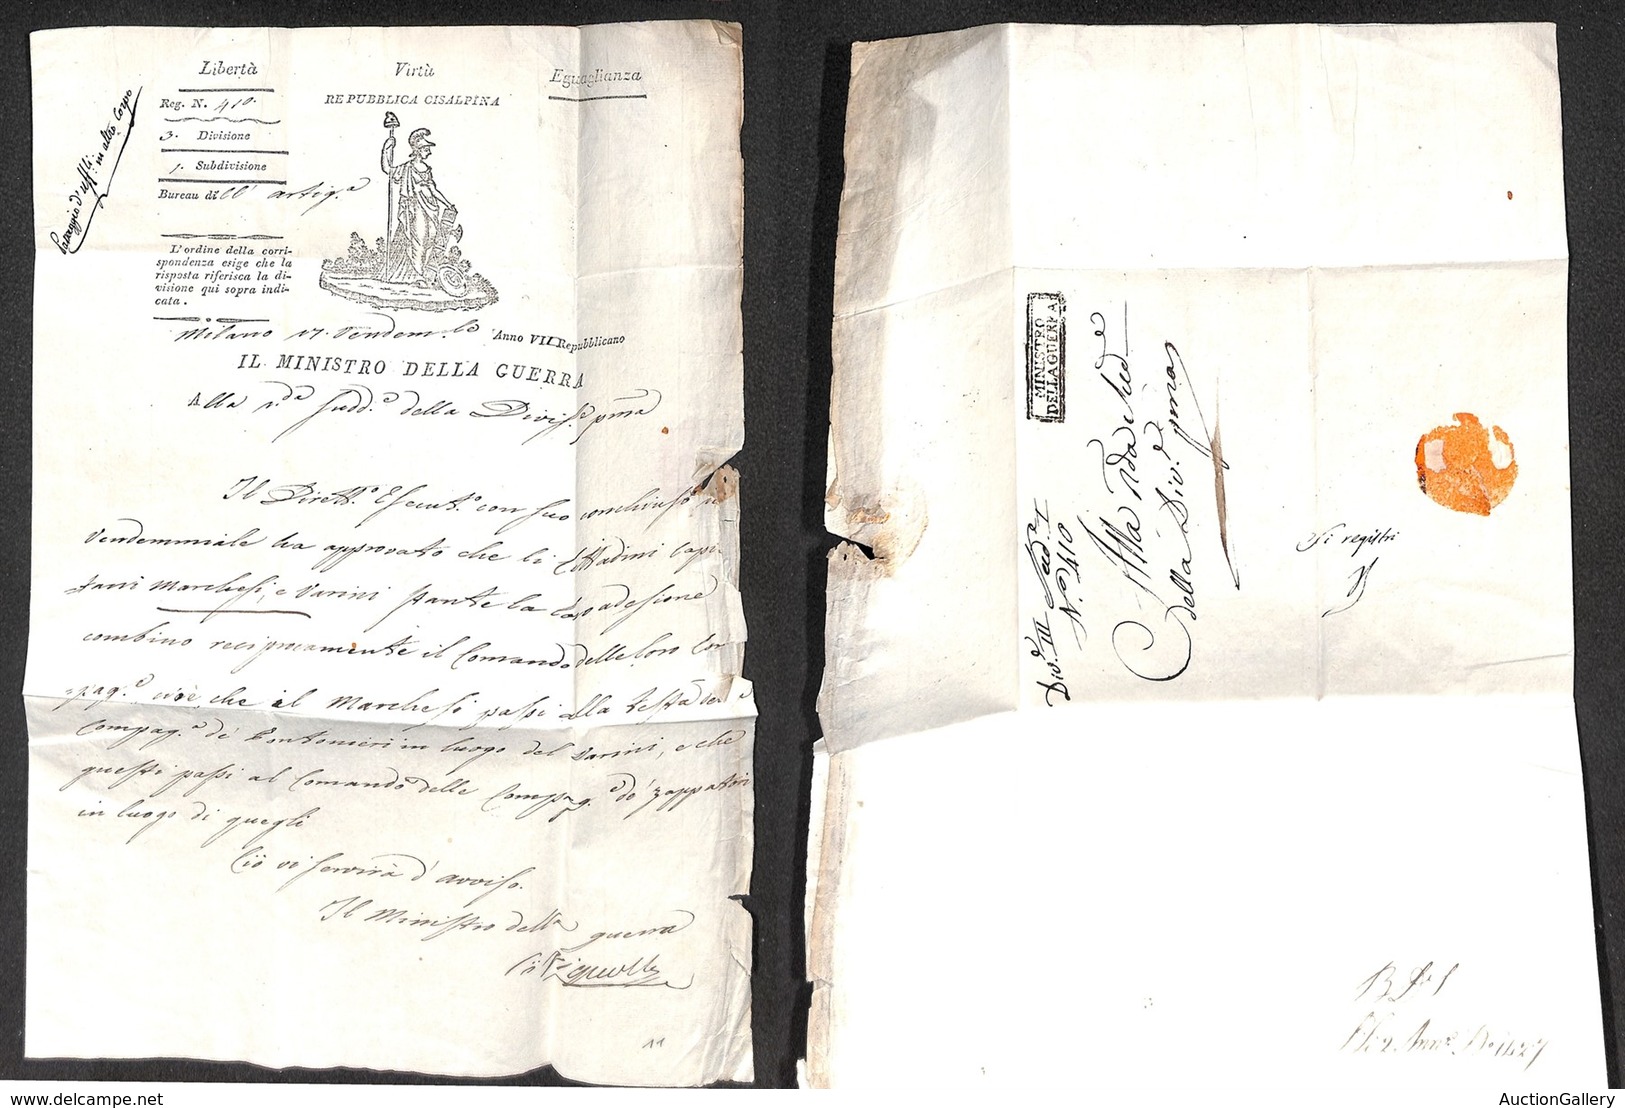 Libertà Virtù Eguaglianza
REPUBBLICA CISALPINA
Reg. N. 410.
3. Divisione
1. Subdivisione
Bureau di artig.a
Passaggio d'uffli: in altro Corpo
L'ordine della corri-
spondenza esige che la
risposta riferisca la di-
visione qui sopra indi-
cata.
Milano 17. Vendem.le Anno VII Repubblicano
IL MINISTRO DELLA GUERRA
Alla della Divis.e pma
Il Dirett.o Esecut.o con suo conchiuso
Vendemmiale ha approvato che li Cittadini Capi-
tani Marchesi, e Varini stante la loro adesione
combino reciprocamente il Comando delle loro Com
pag.e cioè che il Marchesi passi alla testa della
Compag.a de' Pontonieri in luogo del Varini, e che
questi passi al Comando delle Compag.e de' Zappatori
in luogo di quegli
Ciò vi servirà d'avviso.
Il Ministro della guerra
11
MINISTRO
DELLA GUERRA
Div.e III Sud.a I
N.o 410
Alla
della Div.e pma
Si registri
AuctionGallery
www.delcampe.net